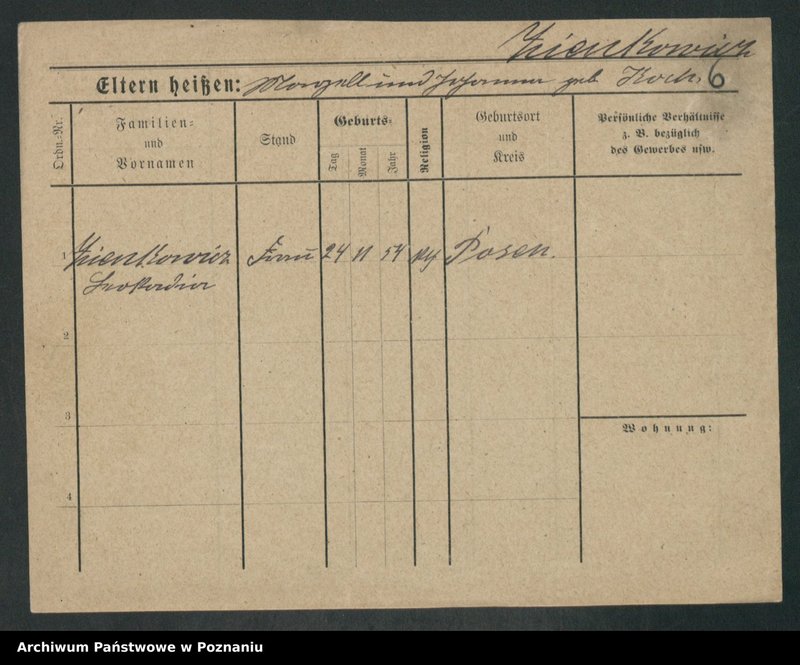 Zienkowicz
Eltern heißen: Marzell und Johanna geb. Koch.
6
Ordn.-Nr.
Familien-
und
Vornamen
Stand
Geburts-
Tag
Monat
Jahr
Religion
Geburtsort
und
Kreis
Persönliche Verhältnisse
z. B. bezüglich
des Gewerbes usw.
1 Zienkowicz Frau 24 11 54 Posen.
Leokadia
2
3
Wohnung:
4
Archiwum Państwowe w Poznaniu